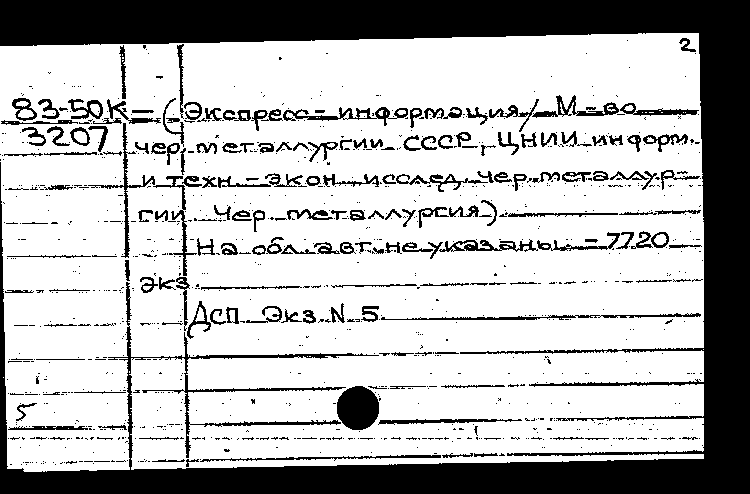 2
83-50К = (Экспресс-информация / М-во
3207 чер. металлургии СССР, ЦНИИ информ.
и техн.-экон. исслед. чер. металлур-
гии. Чер. металлургия).
На обл. авт. не указаны. - 7720
экз.
Дсп. Экз. N 5.
5